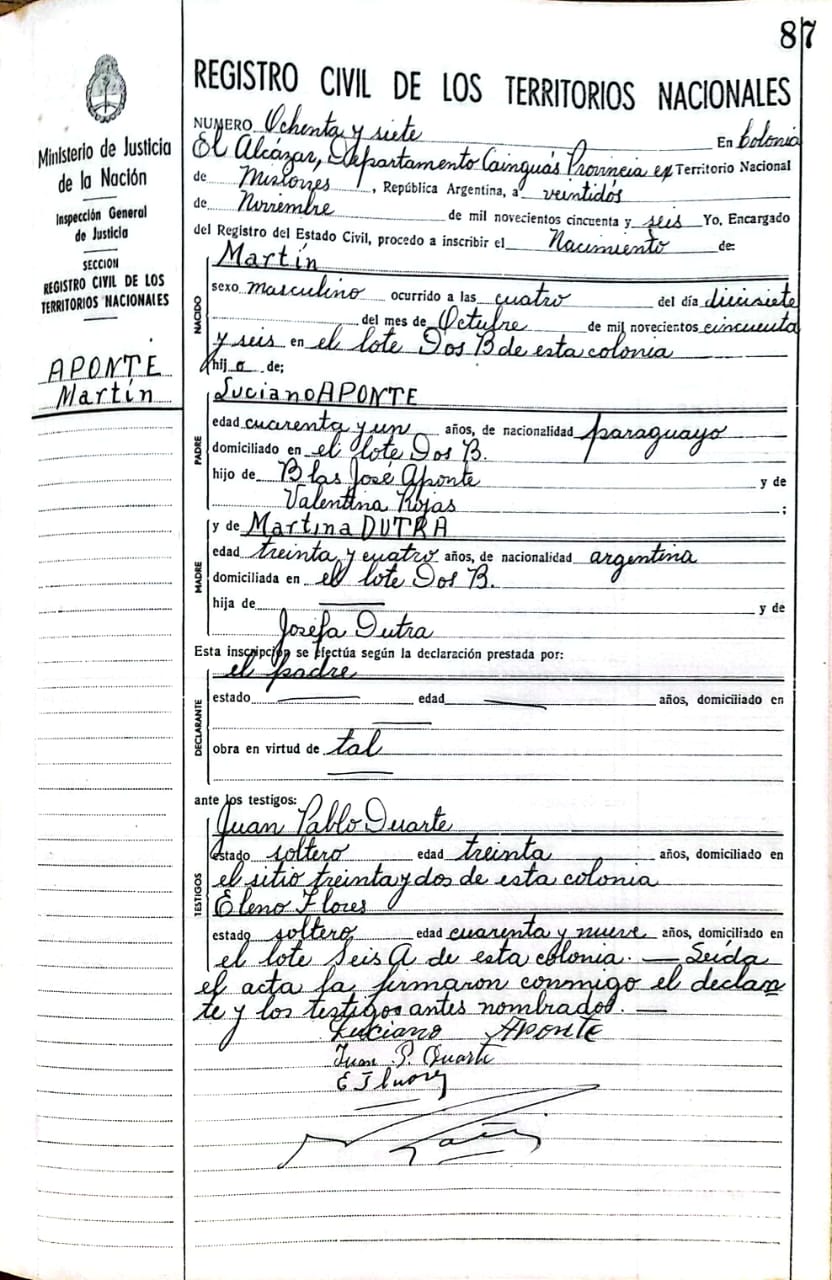 87
Ministerio de Justicia
de la Nación
Inspección General
de Justicia
SECCION
REGISTRO CIVIL DE LOS
TERRITORIOS NACIONALES
APONTE
Martín
REGISTRO CIVIL DE LOS TERRITORIOS NACIONALES
NUMERO Ochenta y siete En Colonia
El Alcázar, Departamento Cainguás Provincia ex Territorio Nacional
de Misiones, República Argentina, a veintidós
de Noviembre de mil novecientos cincuenta y seis Yo, Encargado
del Registro del Estado Civil, procedo a inscribir el Nacimiento de:
NACIDO
Martín
sexo masculino ocurrido a las cuatro del día diecisiete
del mes de Octubre de mil novecientos cincuenta
y seis en el lote Dos B de esta colonia
hijo de;
PADRE
Luciano APONTE
edad cuarenta y un años, de nacionalidad paraguayo
domiciliado en el lote Dos B.
hijo de Blas José Aponte y de
Valentina Rojas ;
MADRE
y de Martina DUTRA
edad treinta y cuatro años, de nacionalidad argentina
domiciliada en el lote Dos B.
hija de — y de
Josefa Dutra
Esta inscripción se efectúa según la declaración prestada por:
DECLARANTE
el padre
estado — edad — años, domiciliado en
—
obra en virtud de tal
—
ante los testigos:
TESTIGOS
Juan Pablo Duarte
estado soltero edad treinta años, domiciliado en
el sitio treinta y dos de esta colonia
Eleno Flores
estado soltero edad cuarenta y nueve años, domiciliado en
el lote Seis A de esta colonia. — Leída
el acta la firmaron conmigo el declaran
te y los testigos antes nombrados. —
Luciano APONTE
Juan P. Duarte